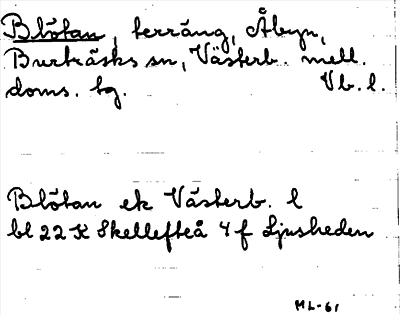 Blötan, terräng, Åbyn,
Burträsks sn, Västerb. mell.
doms. tg. Vb. l.
Blötan ek Västerb. l
bl 22 K Skellefteå 4 f Ljusheden
ML-61